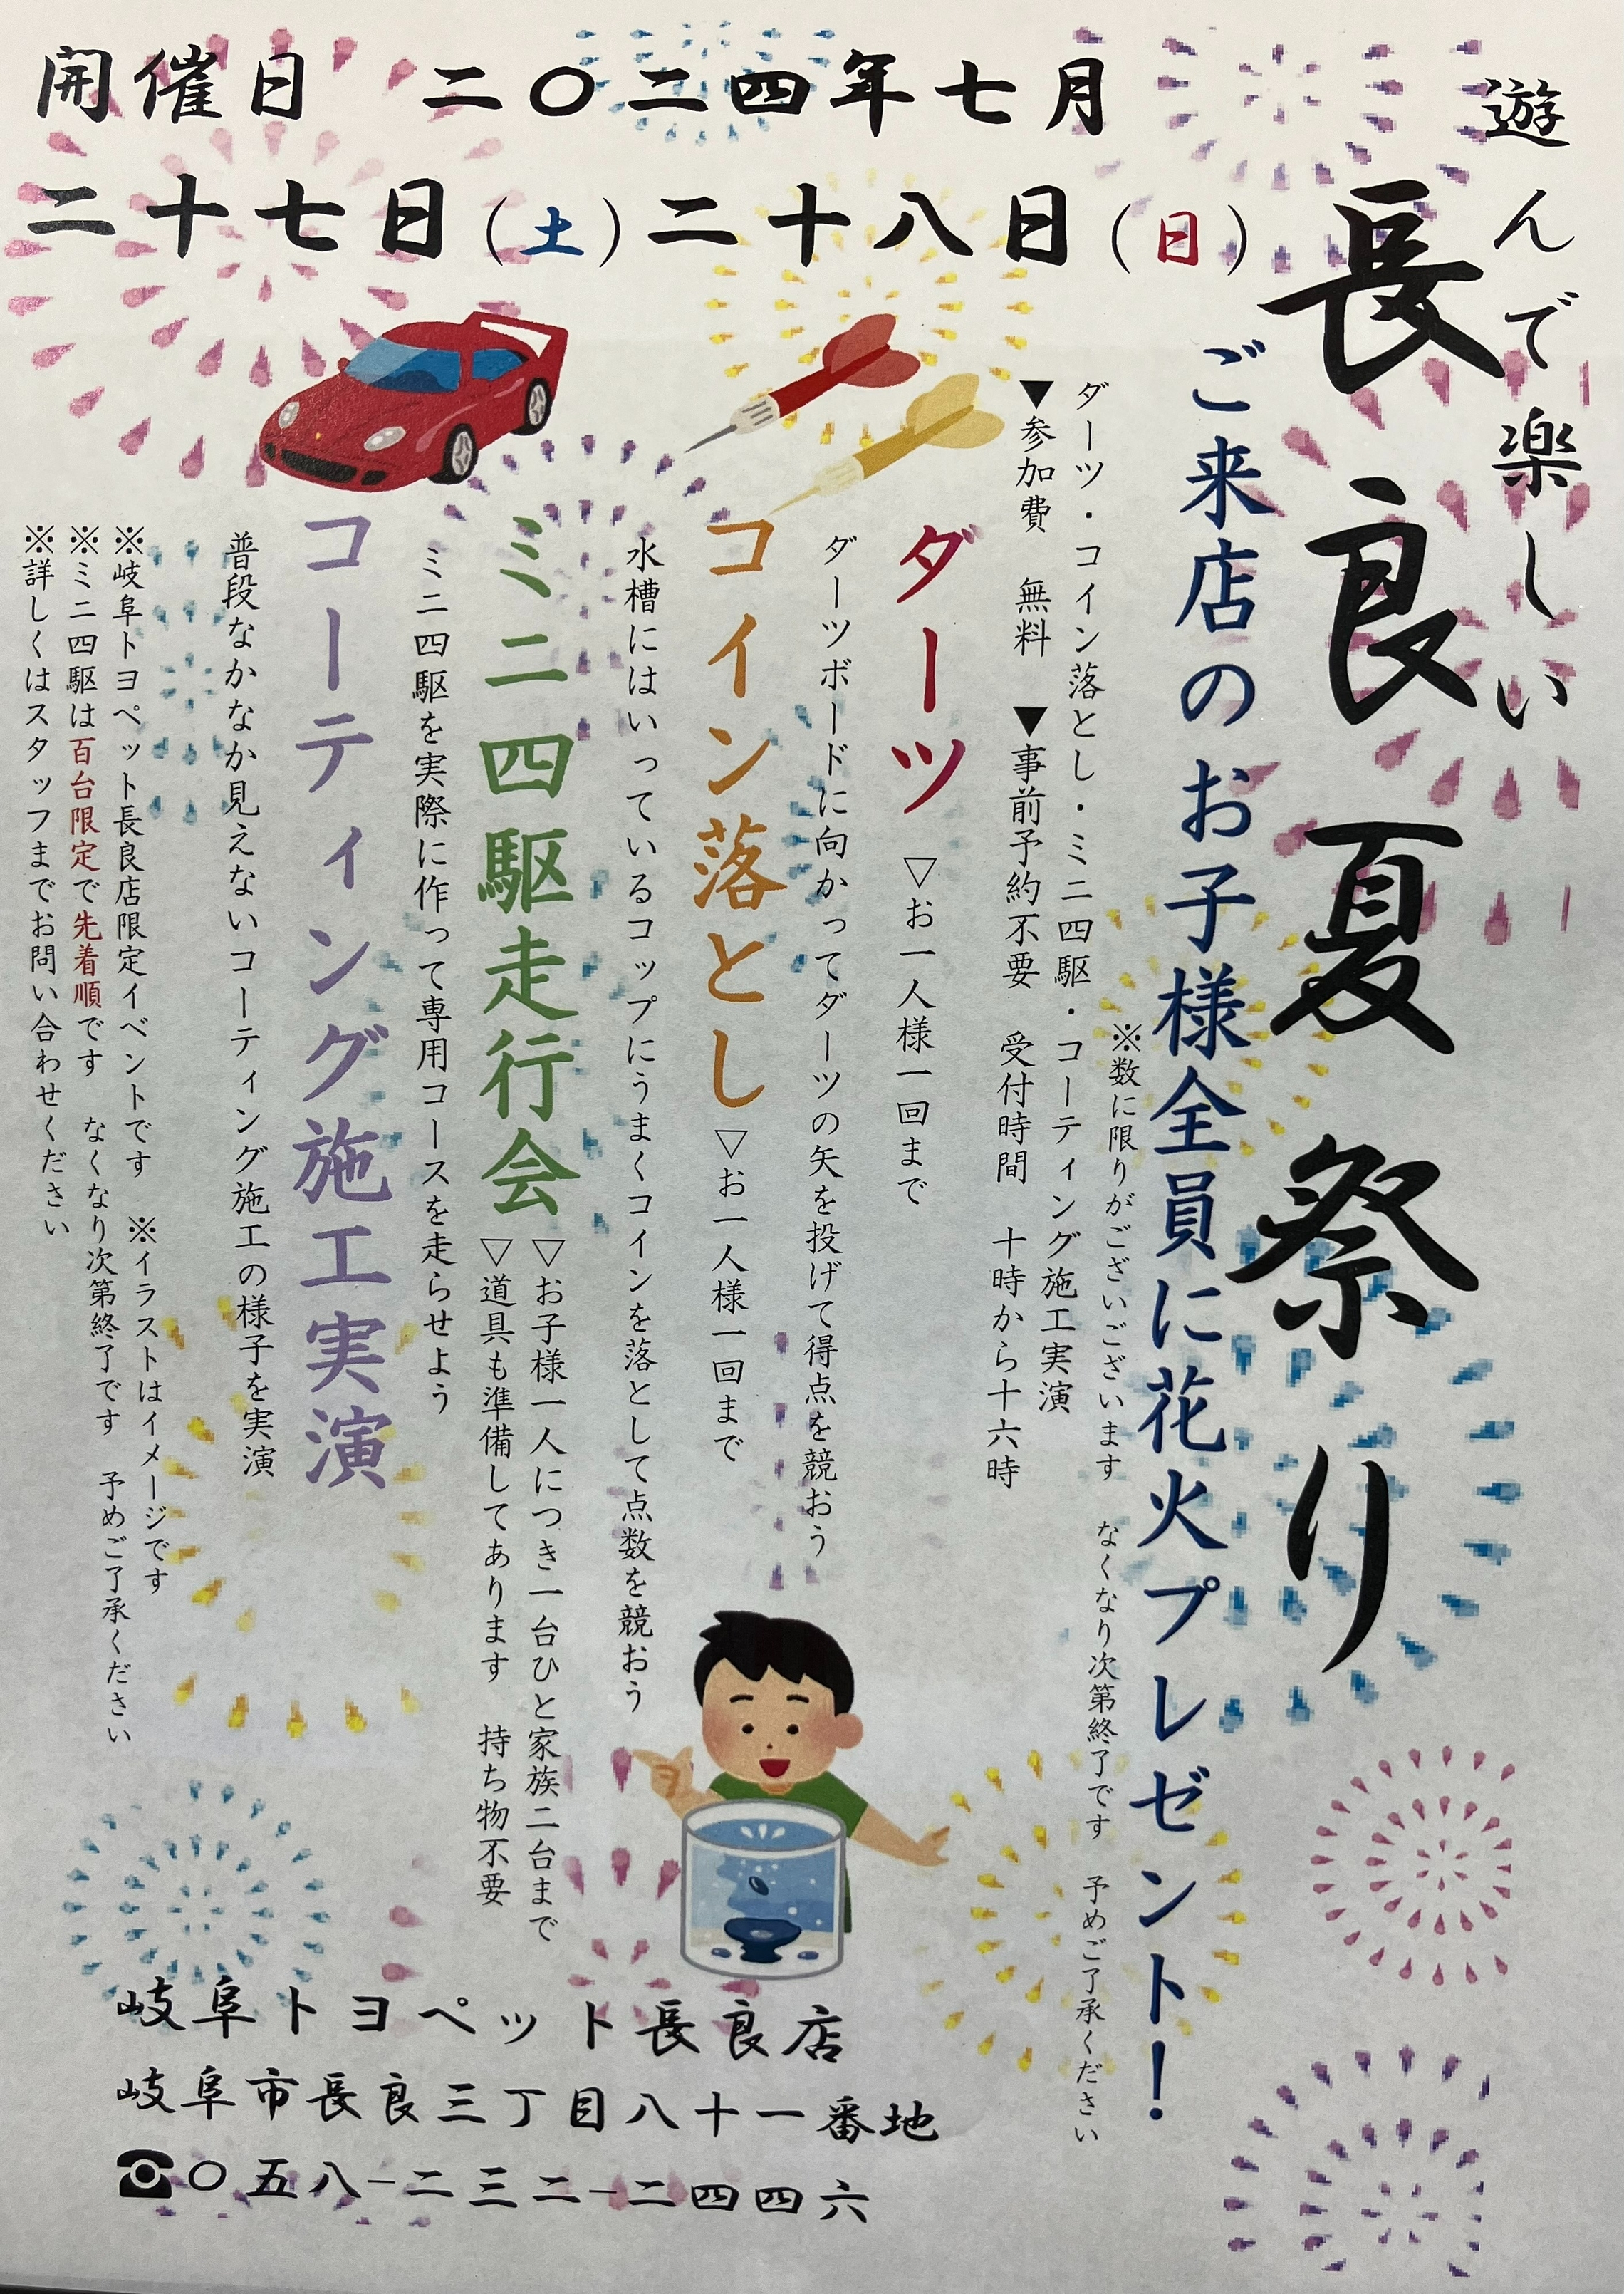 開催日 二〇二四年七月
二十七日（土）二十八日（日）
遊んで楽しい
長良夏祭り
ご来店のお子様全員に花火プレゼント！
※数に限りがございございます なくなり次第終了です 予めご了承ください
ダーツ・コイン落とし・ミニ四駆・コーティング施工実演
▼参加費 無料 ▼事前予約不要 受付時間 十時から十六時
ダーツ ▽お一人様一回まで
ダーツボードに向かってダーツの矢を投げて得点を競おう
コイン落とし ▽お一人様一回まで
水槽にはいっているコップにうまくコインを落として点数を競おう
ミニ四駆走行会
▽お子様一人につき一台ひと家族二台まで
▽道具も準備してあります 持ち物不要
ミニ四駆を実際に作って専用コースを走らせよう
コーティング施工実演
普段なかなか見えないコーティング施工の様子を実演
※岐阜トヨペット長良店限定イベントです ※イラストはイメージです
※ミニ四駆は百台限定で先着順です なくなり次第終了です 予めご了承ください
※詳しくはスタッフまでお問い合わせください
岐阜トヨペット長良店
岐阜市長良三丁目八十一番地
☎〇五八-二三二-二四四六